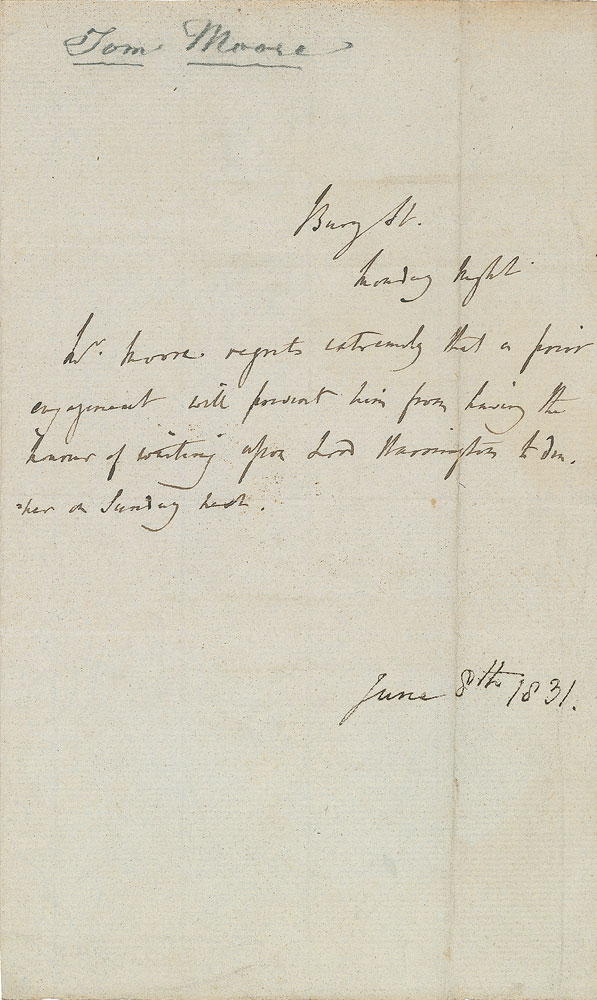 Tom Moore
Bury St.
Monday Night
Mr. Moore regrets extremely that a prior
engagement will prevent him from having the
honour of waiting upon Lord Harrington to din-
-ner on Sunday next.
June 8th 1831.